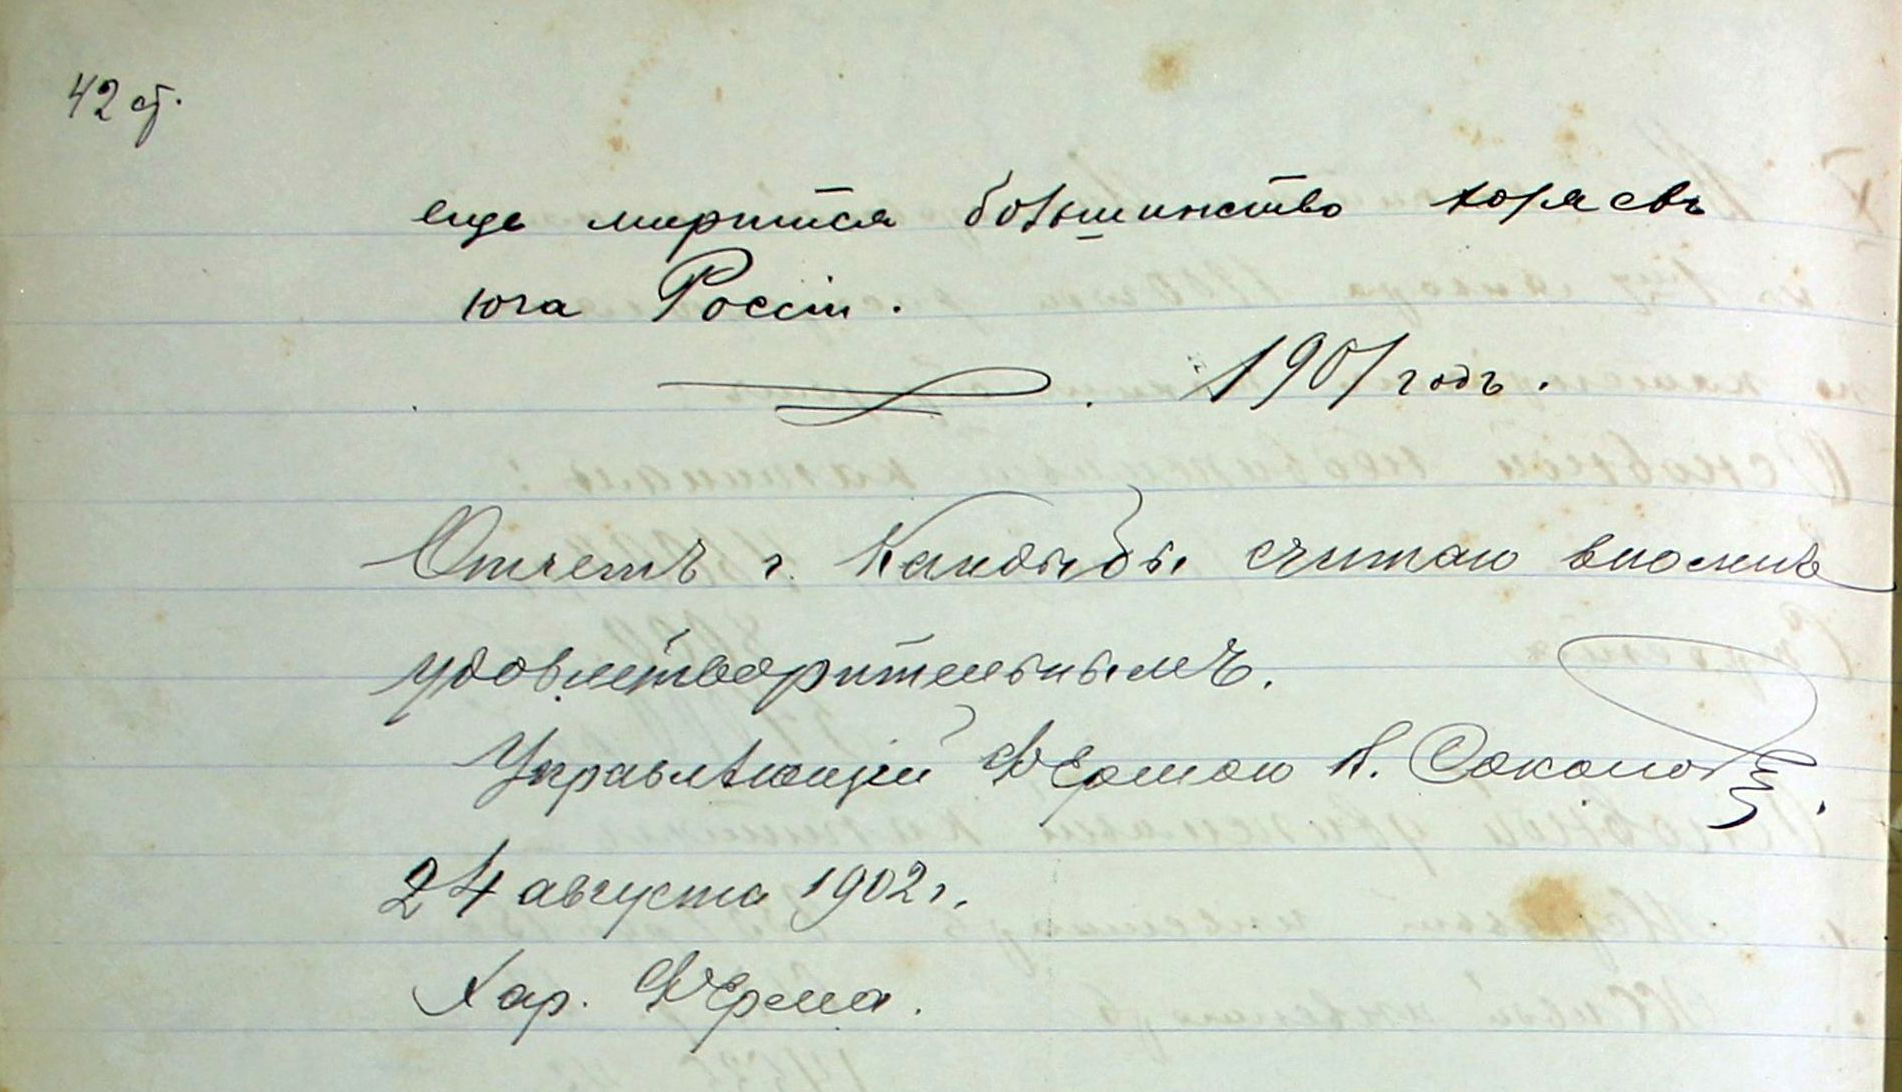 42 ст.
еще мирится большинство хозяевъ
юга Россіи.
1901 годъ.
Отчетъ г. Кандыбы считаю вполнѣ
удовлетворительнымъ.
Управляющій Фермою А. Соколов
24 августа 1902 г.
Хар. Ферма.